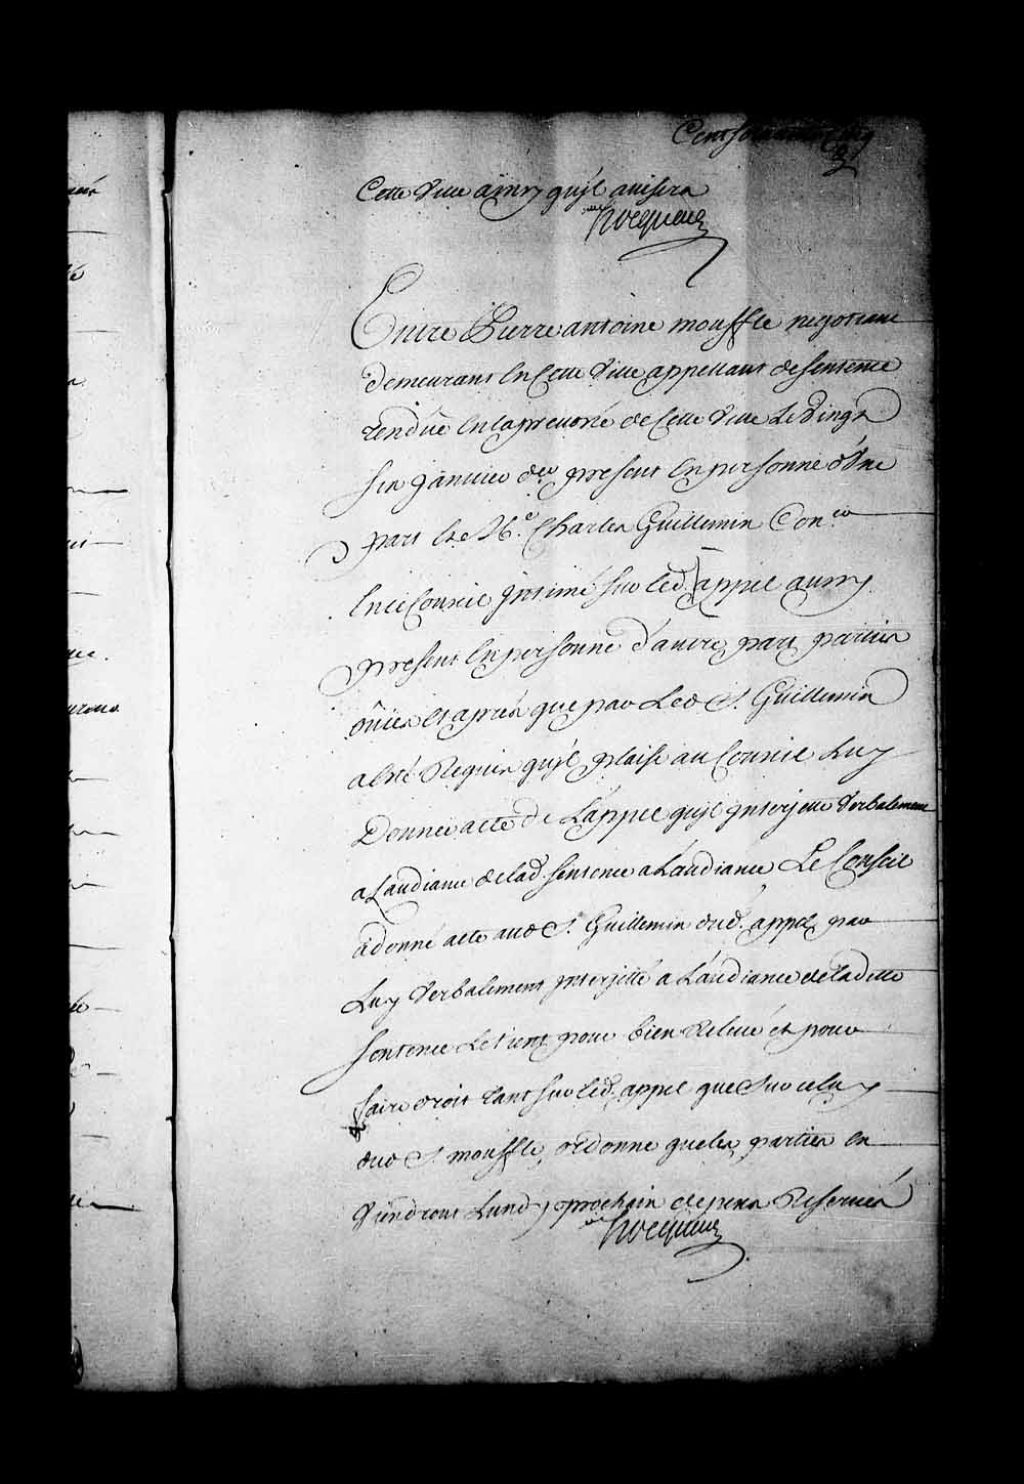 Cent soixante cinq
Cette Ville ainsy quÿl avisera
Hocquart
Entre Pierre antoine mouffle negotiant
demeurant En Cette Ville appellant de Sentence
rendüe En la prevosté de Cette Ville Le Vingt
six Janvier der. present En personne d'Une
part Et Me. Charles Guillemin Coner.
En ce Conseil Jntimé sur led. appel aussy
present En personne d'autre part parties
oüies Et aprés que par Led S. Guillemin
a Esté Requis quÿl plaise au Conseil Luy
Donner acte de L'appel quÿl Jnterjette Verbalement
a Laudiance de lad. Sentence a Laudiance Le Conseil
a donné acte aud S. Guillemin dud. appel par
Luy Verbalement Jnterjetté a L'audiance de ladite
Sentence Le tient pour bien Relevé et pour
faire droit tant sur led. appel que Sur celuy
dud S. mouffle, ordonne que les parties En
Viendront Lundy prochain depens Reservés
Hocquart